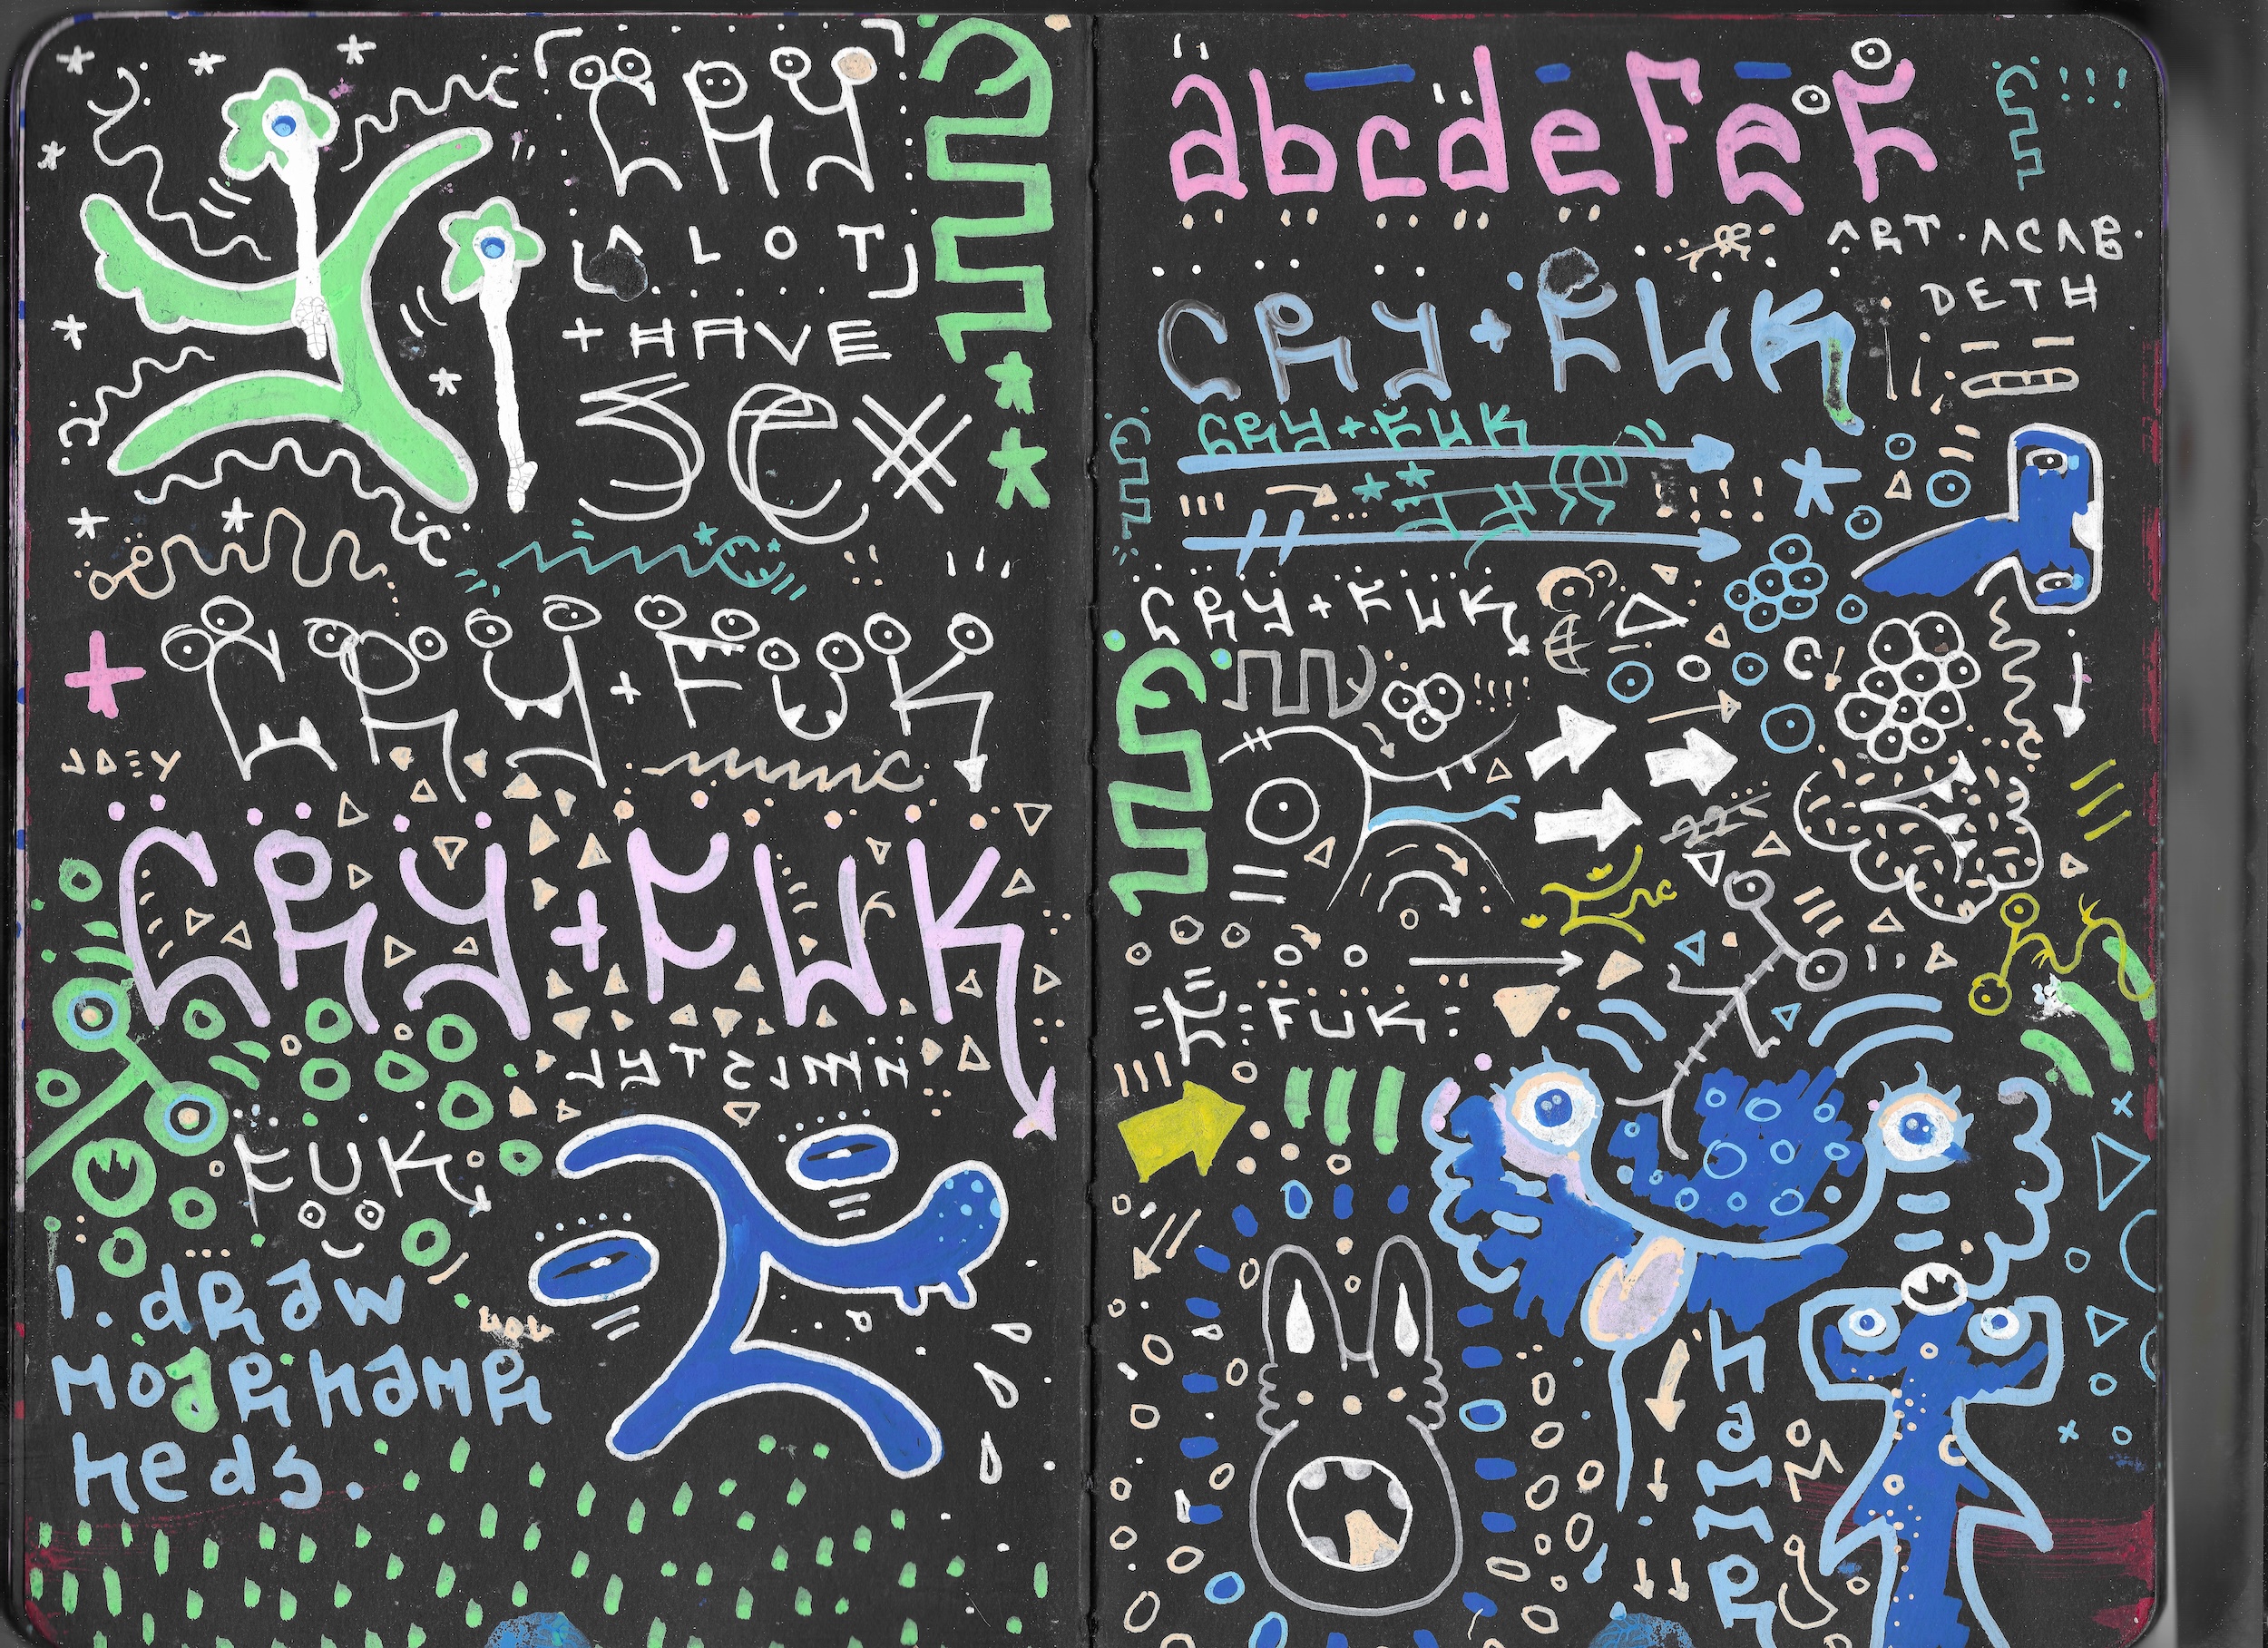 CRY
A LOT
+ HAVE
SEX
CRY + FUK
JOEY
CRY + FUK
FUK
I. dRaw
MoaR hameR
heds.
abcdefer
ART · ACAB ·
DETH
CRY + FUK
CRY + FUK
CRY + FUK
FUK
hammeR